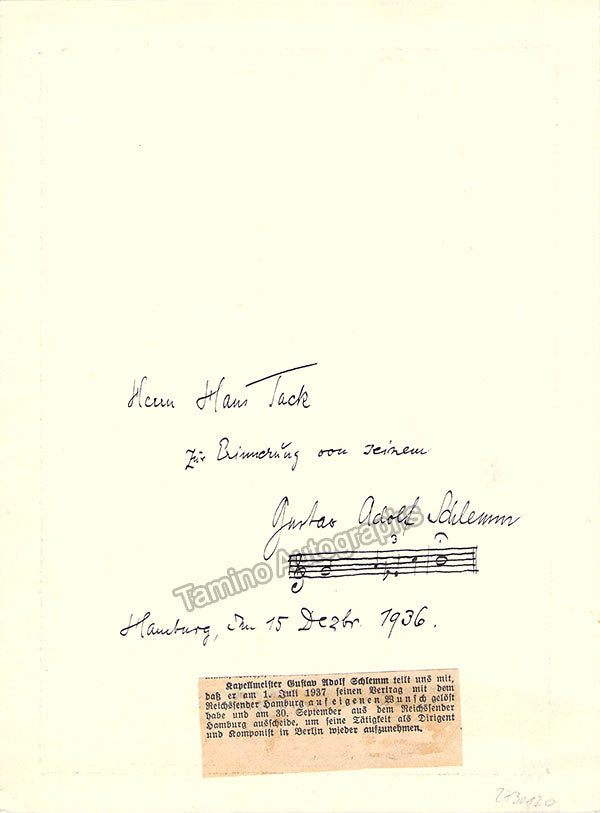 Herrn Hans Tack
zur Erinnerung von seinem
Gustav Adolf Schlemm
3
Tamino Autographs
Hamburg, im 15 Dezbr. 1936.
Kapellmeister Gustav Adolf Schlemm teilt uns mit,
daß er am 1. Juli 1937 seinen Vertrag mit dem
Reichssender Hamburg auf eigenen Wunsch gelöst
habe und am 30. September aus dem Reichssender
Hamburg ausscheide, um seine Tätigkeit als Dirigent
und Komponist in Berlin wieder aufzunehmen.